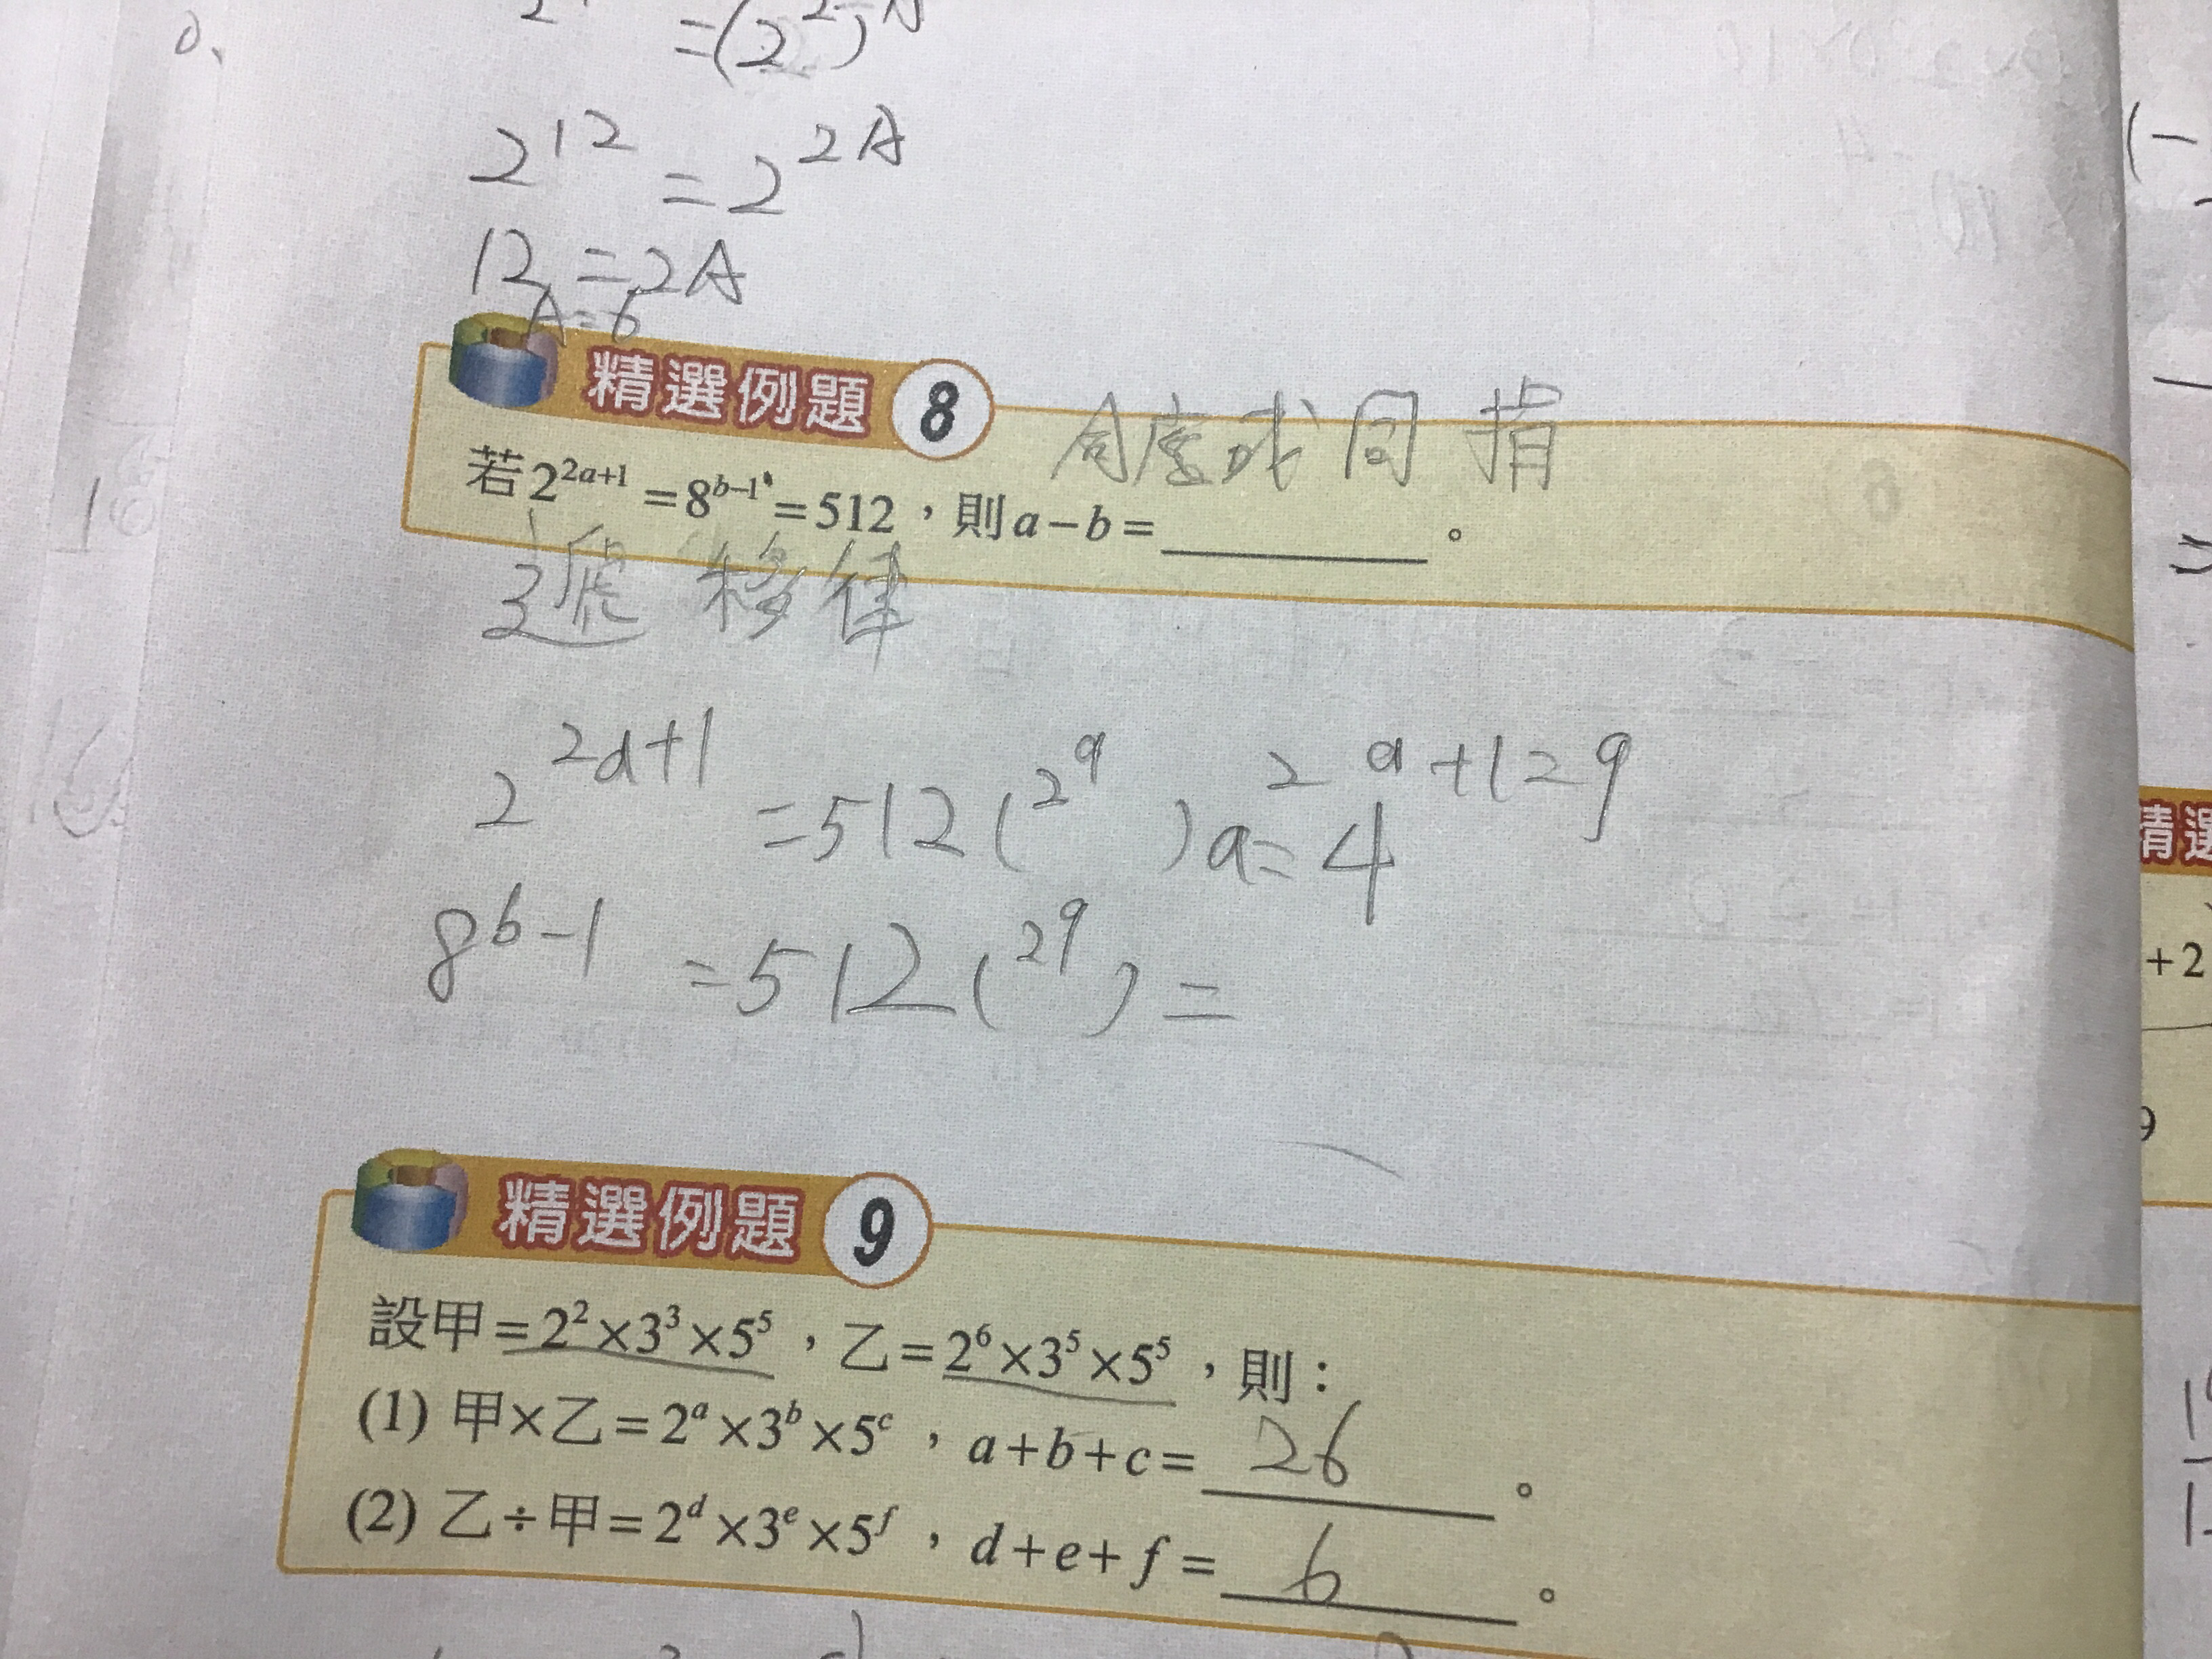 0、
=(2²)ᴬ
2¹² = 2²ᴬ
12 = 2A
A=6
精選例題 8
同底或同指
若2²ᵃ⁺¹=8ᵇ⁻¹=512，則a－b=________。
遞移律
2²ᵃ⁺¹ =512(2⁹) 2a+1=9
a=4
8ᵇ⁻¹ =512(2⁹)=
精選例題 9
設甲=2²×3³×5⁵，乙=2⁶×3⁵×5⁵，則：
(1) 甲×乙=2ᵃ×3ᵇ×5ᶜ，a+b+c= 26 。
(2) 乙÷甲=2ᵈ×3ᵉ×5ᶠ，d+e+f= 6 。
精選
+2